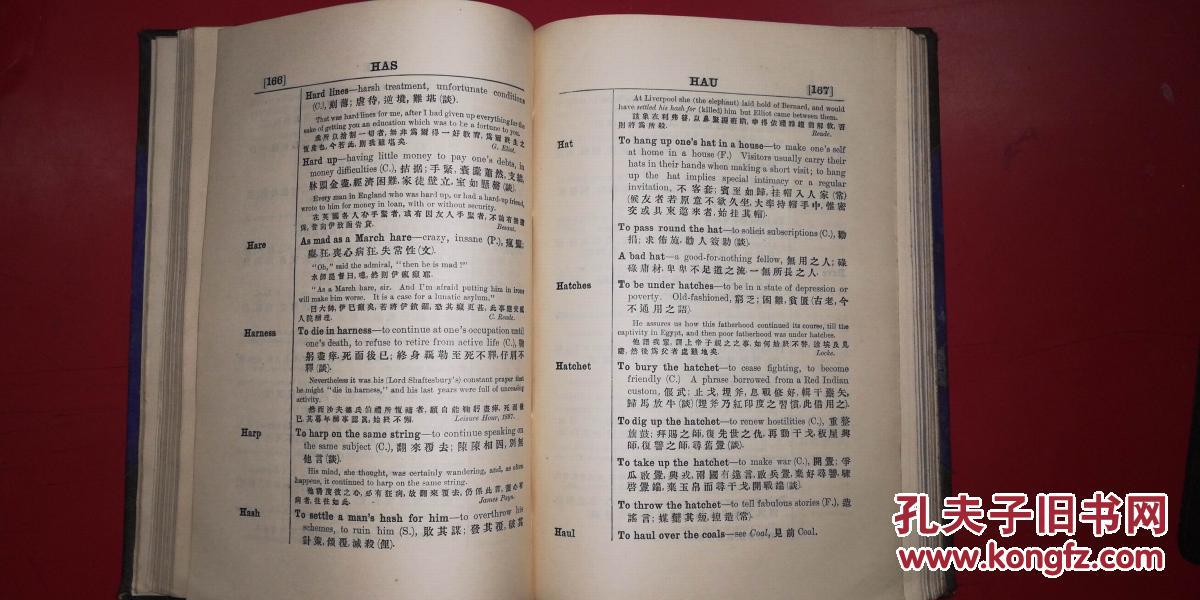 [166]
HAS
Hard lines—harsh treatment, unfortunate conditions
(C.), 刻薄; 虐待, 逆境, 難堪 (談).
That was hard lines for me, after I had given up everything for the
sake of getting you an education which was to be a fortune to you.
G. Eliot.
Hard up—having little money to pay one's debts, in
money difficulties (C.), 拮据; 手緊, 囊橐蕭然, 支絀,
牀頭金盡, 經濟困難, 家徒壁立, 室如懸磬 (談).
Every man in England who was hard up, or had a hard-up friend,
wrote to him for money in loan, with or without security.
Besant.
Hare
As mad as a March hare—crazy, insane (P.), 瘋癲;
癡狂, 喪心病狂, 失常性 (文).
"Oh," said the admiral, "then he is mad!"
水師提督曰, 噫, 然則伊瘋癲耶.
"As a March hare, sir. And I'm afraid putting him in irons
will make him worse. It is a case for a lunatic asylum."
C. Reade.
Harness
To die in harness—to continue at one's occupation until
one's death, to refuse to retire from active life (C.), 鞠
躬盡瘁, 死而後已; 終身羈勒至死不釋, 仔肩不
釋 (談).
Nevertheless it was his (Lord Shaftesbury's) constant prayer that
he might "die in harness," and his last years were full of unceasing
activity.
Leisure Hour, 1887.
Harp
To harp on the same string—to continue speaking on
the same subject (C.), 翻來覆去; 陳陳相因, 別無
他言 (談).
His mind, she thought, was certainly wandering, and, as often
happens, it continued to harp on the same string.
James Payn.
Hash
To settle a man's hash for him—to overthrow his
schemes, to ruin him (S.), 敗其謀; 發其覆, 破其
計策, 傾覆, 滅殺 (俚).
HAU
[167]
At Liverpool she (the elephant) laid hold of Bernard, and would
have settled his hash for (killed) him but Elliot came between them.
Reade.
Hat
To hang up one's hat in a house—to make one's self
at home in a house (F.) Visitors usually carry their
hats in their hands when making a short visit; to hang
up the hat implies special intimacy or a regular
invitation, 不客套; 賓至如歸, 挂帽入人家 (常)
(候友者若原意不欲久坐, 大率持帽手中, 惟密
交或具柬邀來者, 始挂其帽).
To pass round the hat—to solicit subscriptions (C.), 勸
捐; 求佈施, 勸人簽助 (談).
A bad hat—a good-for-nothing fellow, 無用之人; 碌
碌庸材, 卑卑不足道之流, 一無所長之人.
Hatches
To be under hatches—to be in a state of depression or
poverty. Old-fashioned, 窮乏; 困難, 貧匱 (古老, 今
不通用之語).
He assures us how this fatherhood continued its course, till the
captivity in Egypt, and then poor fatherhood was under hatches.
Locke.
Hatchet
To bury the hatchet—to cease fighting, to become
friendly (C.) A phrase borrowed from a Red Indian
custom, 偃武; 止戈, 埋斧, 息戰修好, 輯干櫜矢,
歸馬放牛 (談) (埋斧乃紅印度之習慣, 此借用之).
To dig up the hatchet—to renew hostilities (C.), 重整
旗鼓; 拜賜之師, 復先世之仇, 再動干戈, 板屋興
師, 復讐之師, 尋舊釁 (談).
To take up the hatchet—to make war (C.), 開釁; 爭
瓜啟釁, 興戎, 兩國有違言, 啟兵釁, 棄好尋讐, 肇
啓釁端, 棄玉帛而尋干戈, 開戰端 (談).
To throw the hatchet—to tell fabulous stories (F.), 造
謠言; 媒糱其短, 捏造 (常).
Haul
To haul over the coals—see Coal, 見前 Coal.
孔夫子旧书网
www.kongfz.com